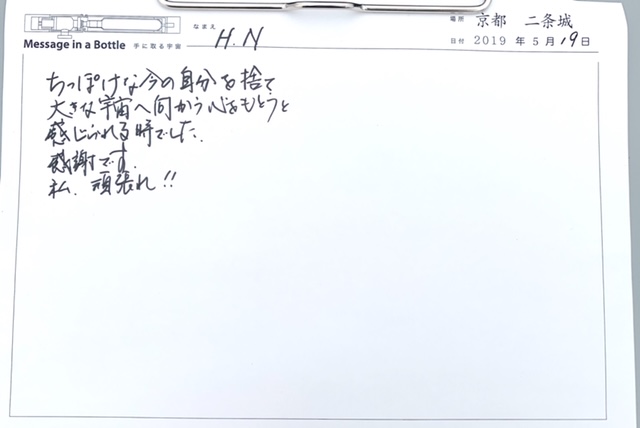 Message in a Bottle 手に取る宇宙
なまえ H.N
場所 京都 二条城
日付 2019 年 5 月 19 日
ちっぽけな今の自分を捨て
大きな宇宙へ向かう心をもとうと
感じられる時でした.
感謝です.
私、頑張れ!!